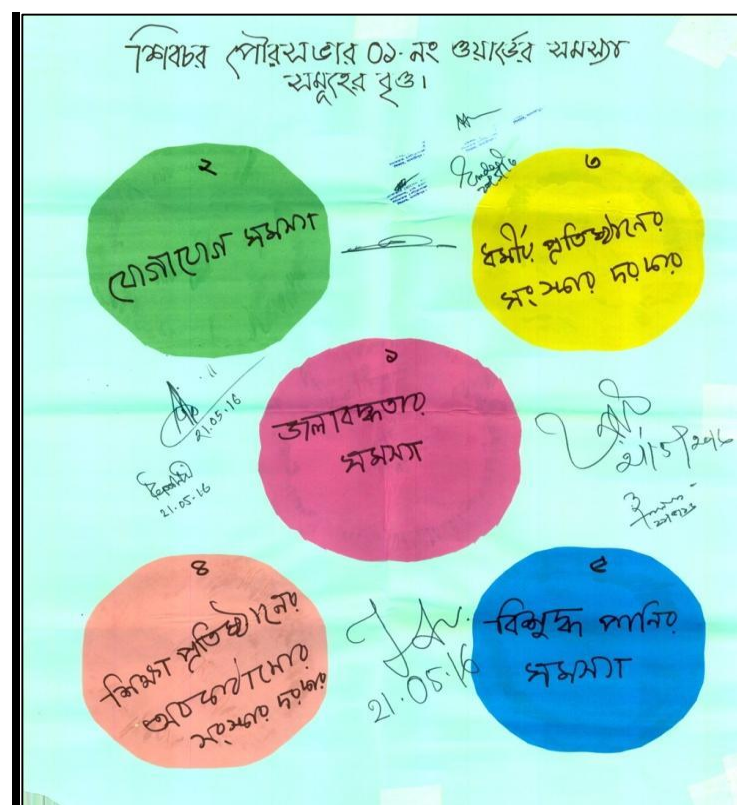 শিবচর পৌরসভার ০১নং ওয়ার্ডের সমস্যা
সমূহের বৃত্ত।
২
যোগাযোগ সমস্যা
৩
ধর্মীয় প্রতিষ্ঠানের
সংস্কার দরকার
১
জলাবদ্ধতার
সমস্যা
21.05.16
21.05.16
৪
শিক্ষা প্রতিষ্ঠানের
অবকাঠামোর
সংস্কার দরকার
21.05.16
৫
বিশুদ্ধ পানির
সমস্যা